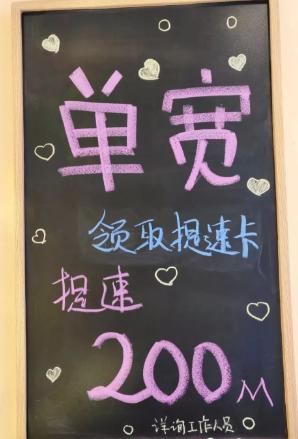 单宽
领取提速卡
提速
200M
详询工作人员